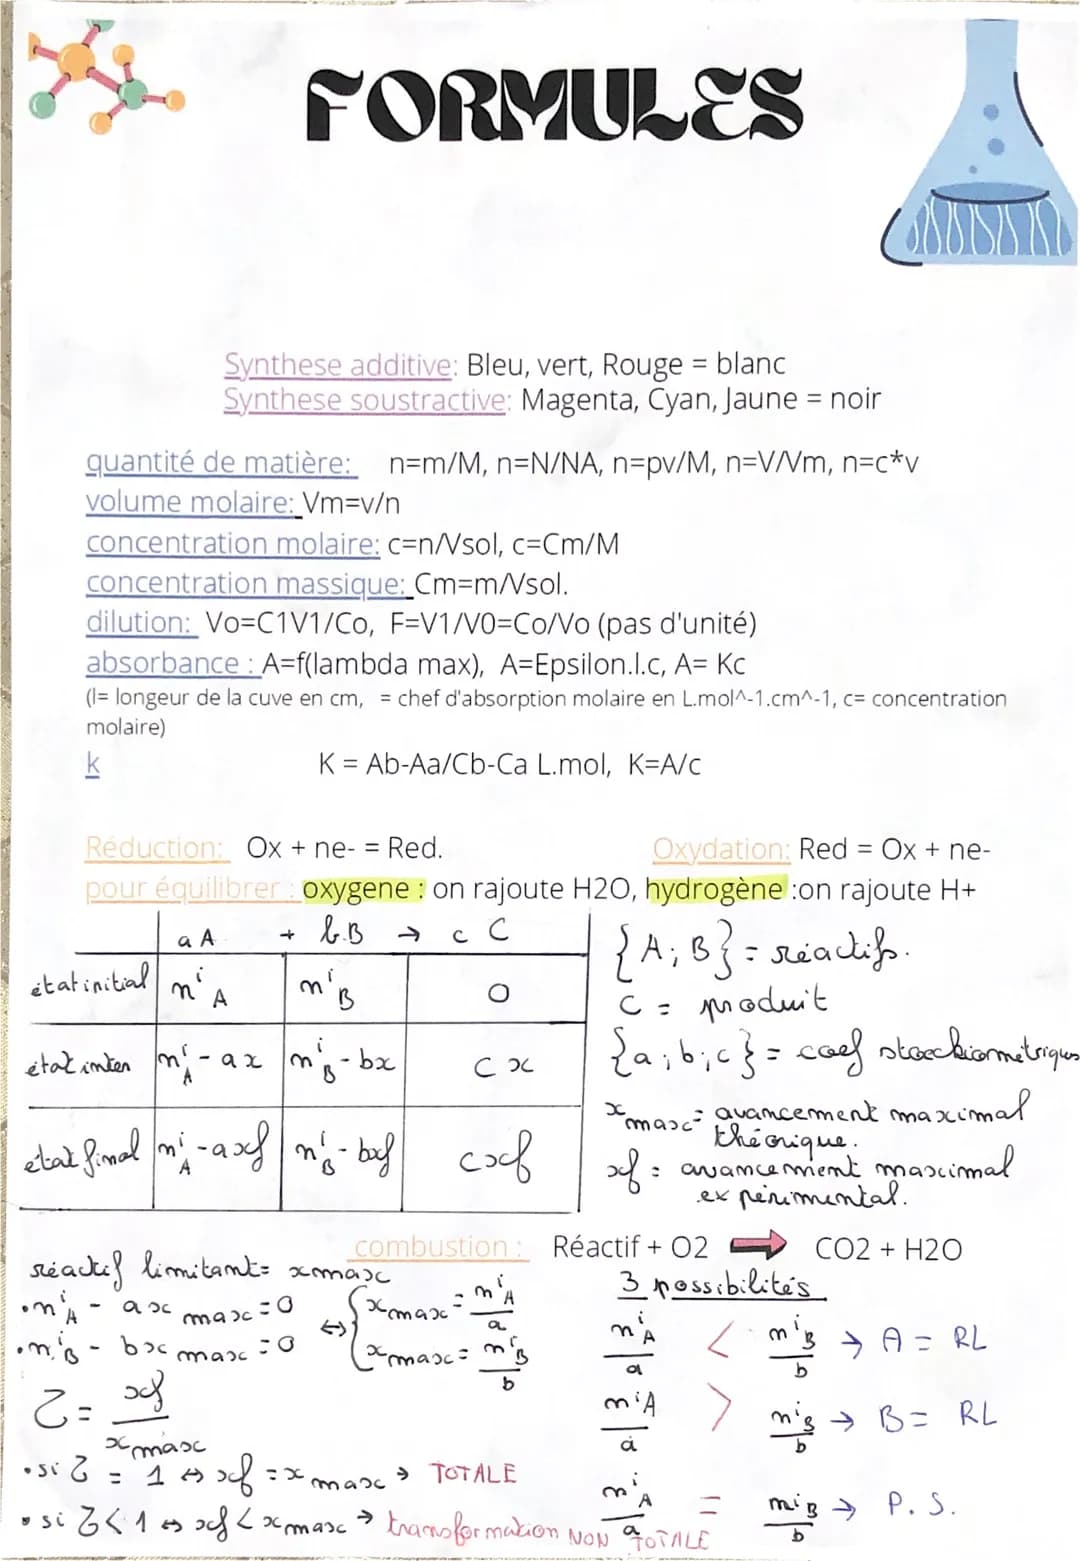 FORMULES
Synthese additive: Bleu, vert, Rouge = blanc
Synthese soustractive: Magenta, Cyan, Jaune = noir
quantité de matière: n=m/M, n=N/NA, n=pv/M, n=V/Vm, n=c*v
volume molaire: Vm=v/n
concentration molaire: c=n/Vsol, c=Cm/M
concentration massique: Cm=m/Vsol.
dilution: Vo=C1V1/Co, F=V1/V0=Co/Vo (pas d'unité)
absorbance : A=f(lambda max), A=Epsilon.l.c, A= Kc
(l= longeur de la cuve en cm, = chef d'absorption molaire en L.mol^-1.cm^-1, c= concentration
molaire)
k K = Ab-Aa/Cb-Ca L.mol, K=A/c
Réduction: Ox + ne- = Red. Oxydation: Red = Ox + ne-
pour équilibrer : oxygene : on rajoute H2O, hydrogène :on rajoute H+
a A + b.B → c C
état initial nⁱA nⁱB 0
état inter nⁱA - ax nⁱB - bx c x
état final nⁱA - axf nⁱB - bxf cxf
{A; B} = réactifs.
C = produit
{a; b; c} = coef stoechiométriques
xmax = avancement maximal
théorique.
xf = avancement maximal
expérimental.
combustion : Réactif + O2 → CO2 + H2O
réactif limitant= xmax
•nⁱA - ax max = 0
•nⁱB - bx max = 0
⇔ { xmax = nⁱA / a
xmax = nⁱB / b
τ = xf / xmax
•si τ = 1 ⇔ xf = x max → TOTALE
•si τ < 1 ⇔ xf < xmax → transformation NON TOTALE
3 possibilités
nⁱA / a < nⁱB / b → A = RL
nⁱA / a > nⁱB / b → B = RL
nⁱA / a = nⁱB / b → P. S.